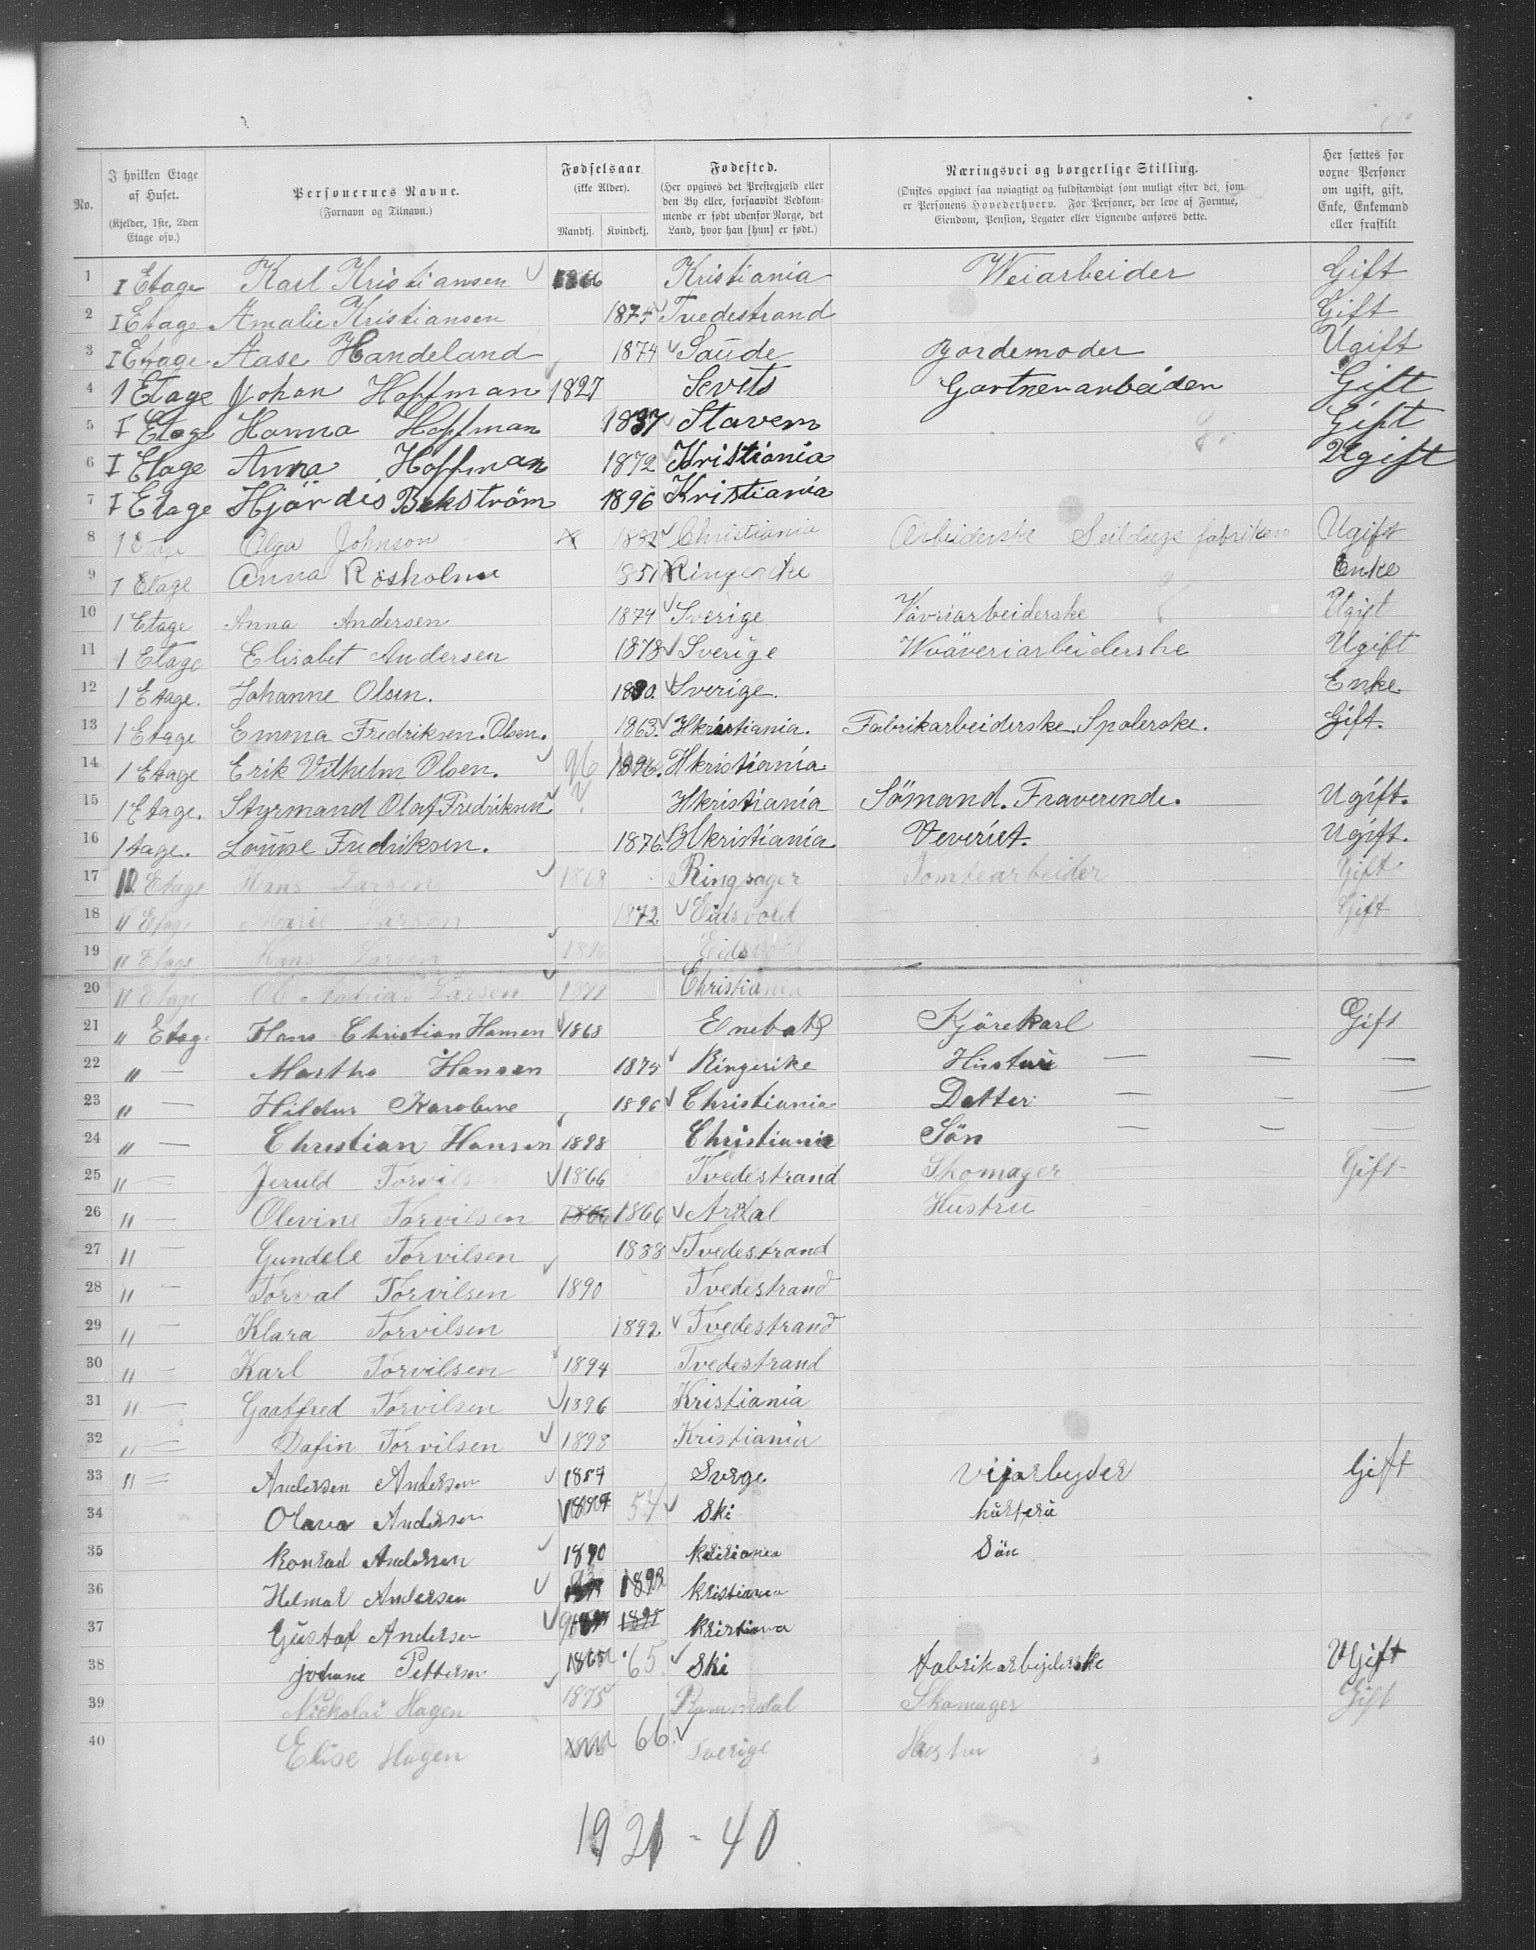 No. | I hvilken Etage af Huset. (Kjelder, 1ste, 2den Etage osv.) | Personernes Navne. (Fornavn og Tilnavn.) | Fødselsaar (ikke Alder). Mandkj. Kvindekj. | Fødested. (Her opgives det Prestegjæld eller den By eller, forsaavidt Vedkommende er født udenfor Norge, det Land, hvor han [hun] er født.) | Næringsvei og borgerlige Stilling. (Ønskes opgivet saa nøiagtigt og fuldstændigt som muligt efter det, som er Personens Hovederhverv. For Personer, der leve af Formue, Eiendom, Pension, Legater eller Lignende anføres dette. | Her sættes for voxne Personer om ugift, gift, Enke, Enkemand eller fraskilt
1 I Etage Karl Kristiansen 1866 Kristiania Weiarbeider Gift
2 I Etage Amalie Kristiansen 1875 Tvedestrand Gift
3 I Etage Aase Handeland 1874 Saude Jordemoder Ugift
4 1 Etage Johan Hoffman 1827 Sevits Gartnerarbeider Gift
5 I Etage Hanna Hoffman 1837 Stavern Gift
6 I Etage Anna Hoffman 1872 Kristiania Ugift
7 I Etage Hjördis Bekström 1896 Kristiania
8 1 Etage Olga Johnson 1882 Christiania Arbeiderske Seildugs fabriken Ugift
9 I Etage Anna Rösholm 1851 Ringerike Enke
10 1 Etage Anna Andersen 1874 Sverige Vävriarbeiderske Ugift
11 1 Etage Elisabet Andersen 1878 Sverige Wväveriarbeiderske Ugift
12 1 Etage. Johanne Olsen. 1830. Sverige. Enke
13 1 Etage Emma Fredriksen. Olsen. 1863. Hkristiania. Fabrikarbeiderske. Spolerske. Gift.
14 1 Etage Erik Vilhelm Olsen. 96 1896. Hkristiania
15 1 Etage. Styrmand Olaf Fredriksen ? Hkristiania Sömand. Fraverende. Ugift.
16 1 tage. Louise Fredriksen. 1876. Hkristiania Veveriet. Ugift.
17 II Etage Hans Larsen 1868 Ringsager Tomtearbeider Gift
18 " Etage Marie Larsen 1872 Eidsvold Gift
19 " Etage Hans Larsen Eidsvold
20 " Etage Andrias Larsen Christiania
21 " Etag. Hans Christian Hansen 1868 Enebak Kjörekarl Gift
22 " — Martha Hansen 1875 Ringerike Hustru — — —
23 " — Hildur Karoline 1896 Christiania Datter — — —
24 " — Christian Hansen 1898 Christiania Sön — — —
25 " — Jeruld Torvilsen 1866 Tvedestrand Skomager Gift
26 " — Olevine Torvilsen 1866 1866 Ardal Hustru
27 " — Gundele Torvilsen 1888 Tvedestrand
28 " — Torval Torvilsen 1890 Tvedestrand
29 " — Klara Torvilsen 1892 Tvedestrand
30 " — Karl Torvilsen 1894 Tvedestrand
31 " — Gaatfred Torvilsen 1896 Kristiania
32 " — Dafin Torvilsen 1898 Kristiania
33 " — Andersen Andersen 1857 Sverge Vijarbyder Gift
34 Olava Andersen 54 Ski hustru
35 Konrad Andersen 1890 Sön
36 Helmar Andersen 93 Kristiania
37 Gustaf Andersen 1895 Kristiania
38 johane Pettersen 1865 65 Ski fabrikarbyderske UGift
39 Nickolai Hagen 1875 Romsdal Skomager Gift
40 Elise Hagen 66 Sverige Hustru
1921 - 40